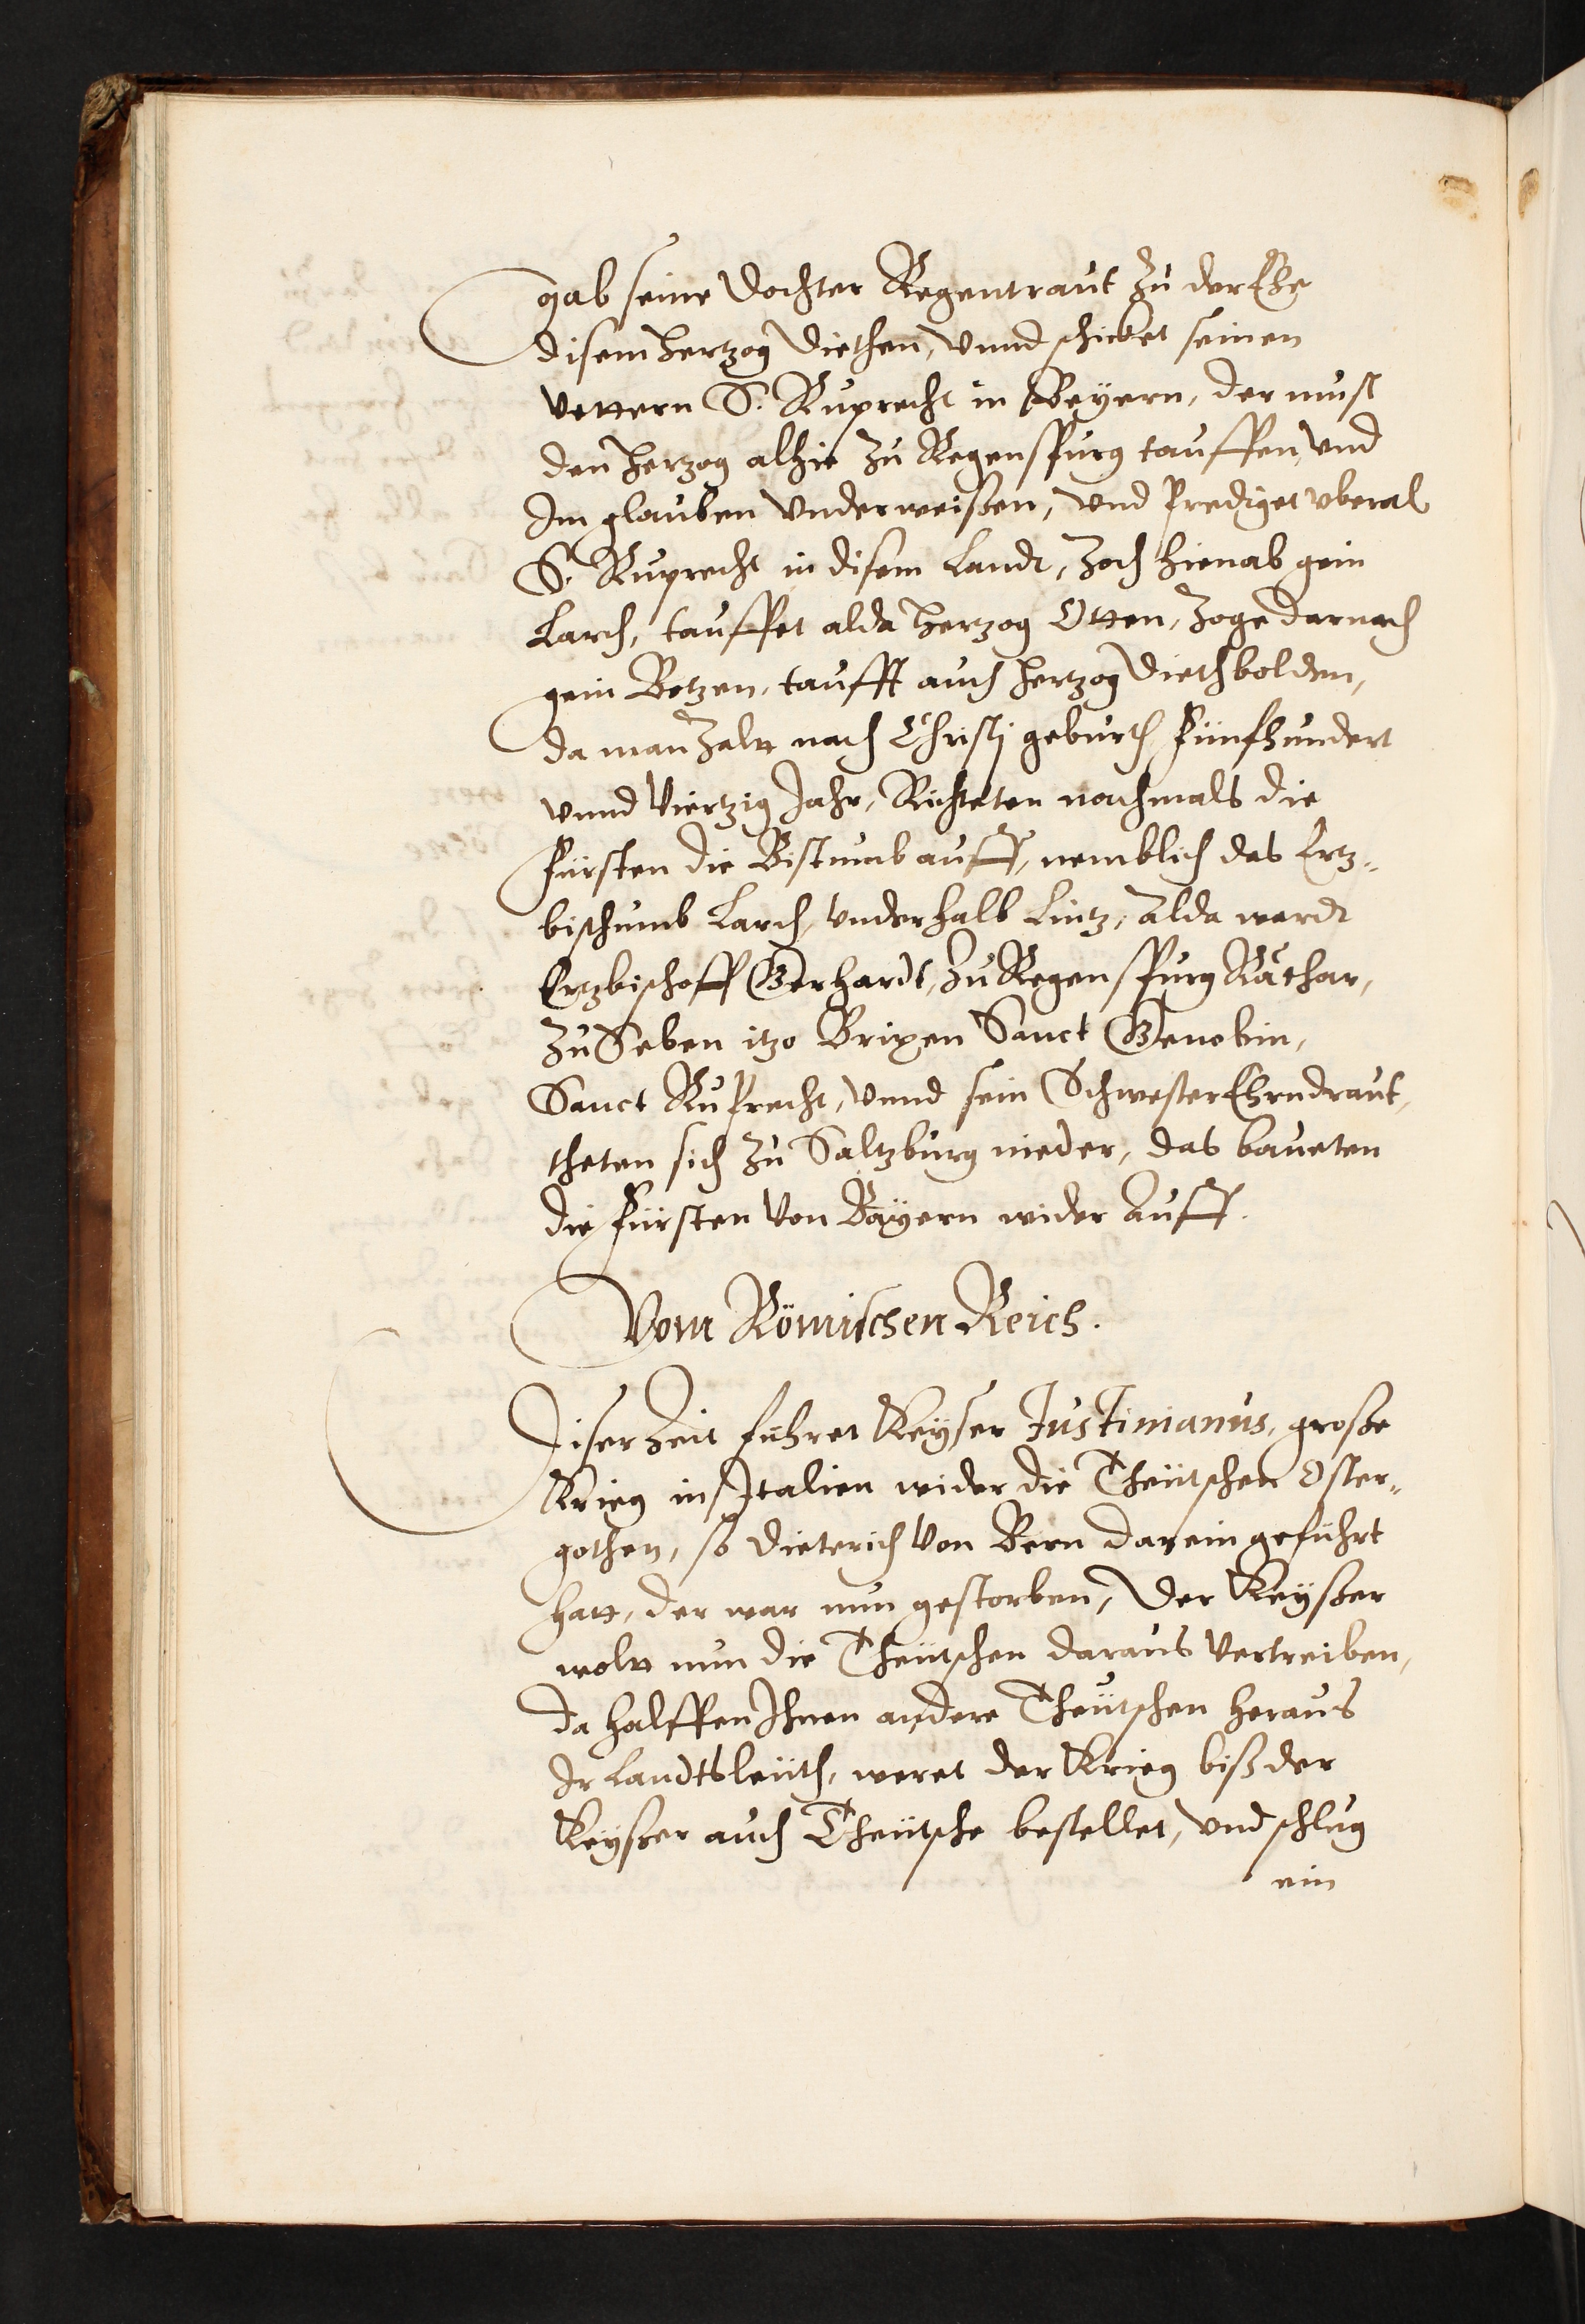 gab seine Dochter Regentraut zu der Ehe
disem Hertzog Diethen, vnnd schicket seinen
Vettern S. Ruprecht in Beyern, der must
den Herzog alhie zu Regenspurg tauffen, vnd
Im glauben vnderweißen, vnd Prediget vberal
S. Ruprecht in disem Landt, zoch hienab gein
Larch, tauffet alda Herzog Otten, zoge darnach
gein Botzen, taufft auch Hertzog Diethbolden,
da man zalt nach Christj geburth Fünfhundert
vnnd Viertzig Jahr, Richteten nachmals die
Fürsten die Bistumb auff, nemblich das Ertz-
bischumb Larch, vnderhalb Lintz, alda wardt
Ertzbischoff Gerhardt, zu Regenspurg Rathar,
zu Seben itzo Brixen Sanct Genobin,
Sanct Ruprecht, vnnd sein Schwester Ehrndraut,
theten sich zu Saltzburg nieder, das baueten
die Fürsten von Bayern wider auff.
Vom Römischen Reich.
Diser Zeit fuhret Keyser Justinianus, große
Krieg in Italien wider die Theütschen Oster-
gothen, so Dieterich von Bern darein geführt
hatt, der war nun gestorben, Der Keyßer
wolt nun die Theütschen daraus vertreiben,
da halffen Ihnen andere Theütschen heraus
Ir Landtsleüth, weret der Krieg biß der
Keyßer auch Theütsche bestellet, vnd schlug
ein